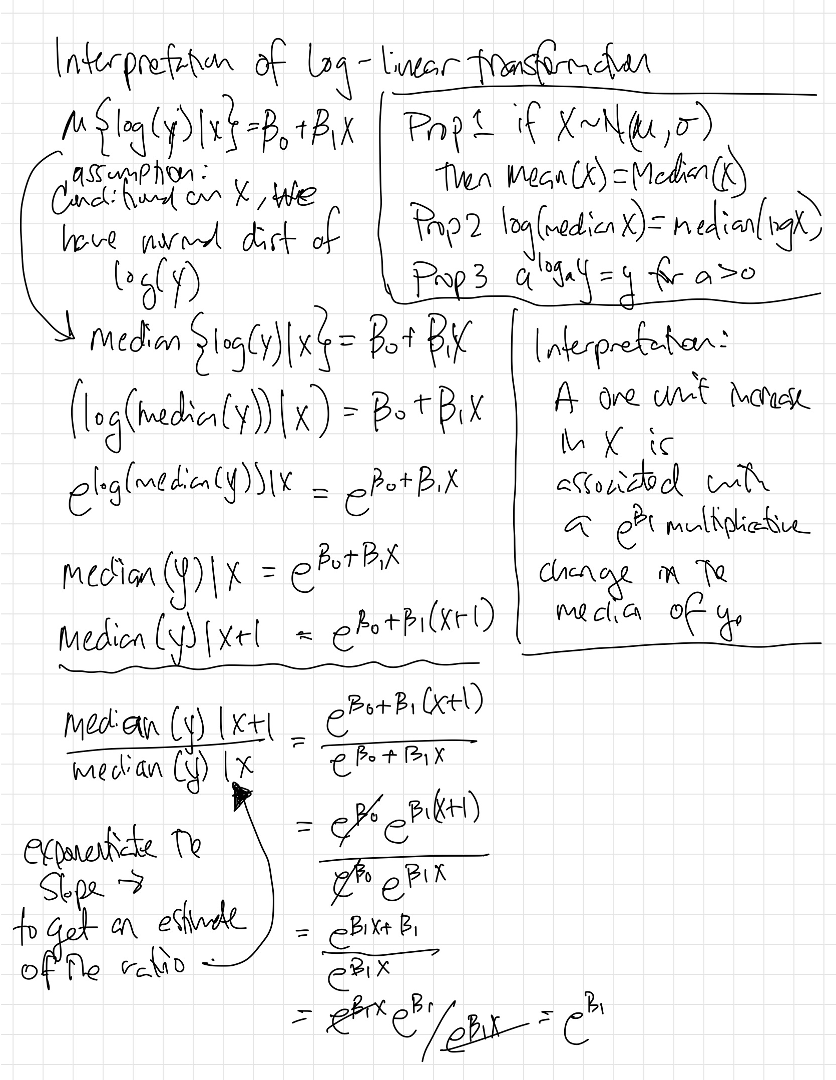 Interpretation of log-linear transformation
μ{log(y)|x}=β₀+β₁x
assumption:
Conditional on X, we
have normal dist of
log(y)
Prop1 if X~N(μ,σ)
then mean(x)=Median(x)
Prop2 log(median x)=median(logx)
Prop3 a^(logₐy)=y for a>0
median{log(y)|x}=β₀+β₁x
(log(median(y))|x)=β₀+β₁x
e^(log(median(y))|x)=e^(β₀+β₁x)
median(y)|x=e^(β₀+β₁x)
median(y)|x+1=e^(β₀+β₁(x+1))
Interpretation:
A one unit increase
in X is
associated with
a e^(β₁) multiplicative
change in the
media of y.
median(y)|x+1 = e^(β₀+β₁(x+1))
median(y)|x e^(β₀+β₁x)
= e^(β₀) e^(β₁(x+1))
e^(β₀) e^(β₁x)
= e^(β₁x+β₁)
e^(β₁x)
= e^(β₁x) e^(β₁)/e^(β₁x) = e^(β₁)
exponentiate the
slope →
to get an estimate
of the ratio